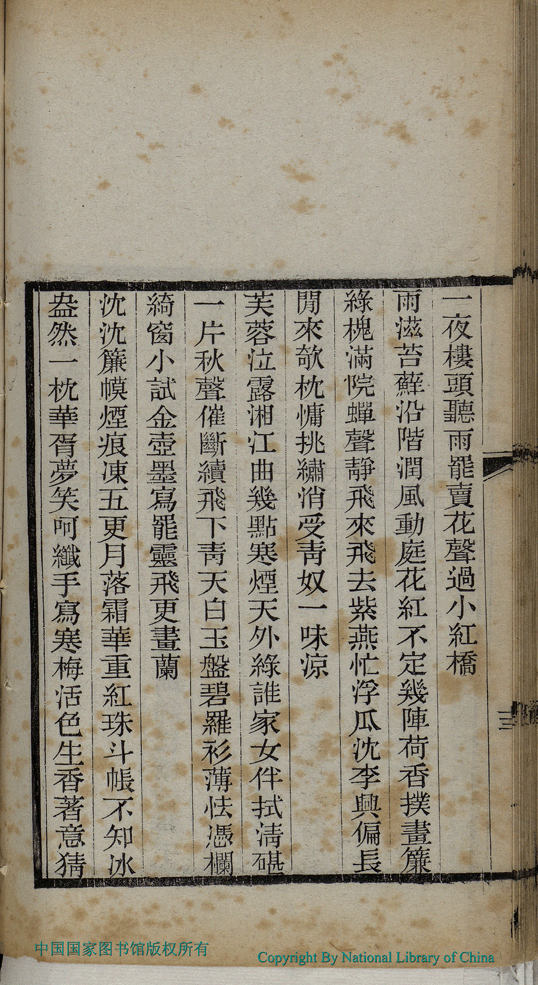 一夜樓頭聽雨罷賣花聲過小紅橋
雨滋苔蘚沿階潤風動庭花紅不定幾陣荷香撲畫簾
綠槐滿院蟬聲靜飛來飛去紫燕忙浮瓜沈李興偏長
閒來欹枕慵挑繡消受青奴一味涼
芙蓉泣露湘江曲幾點寒煙天外綠誰家女伴拭清碪
一片秋聲催斷續飛下靑天白玉盤碧羅衫薄怯憑欄
綺窗小試金壺墨寫罷靈飛更畫蘭
沈沈簾幙煙痕凍五更月落霜華重紅珠斗帳不知冰
盎然一枕華胥夢笑呵纖手寫寒梅活色生香著意猜
三
中国国家图书馆版权所有
Copyright By National Library of China